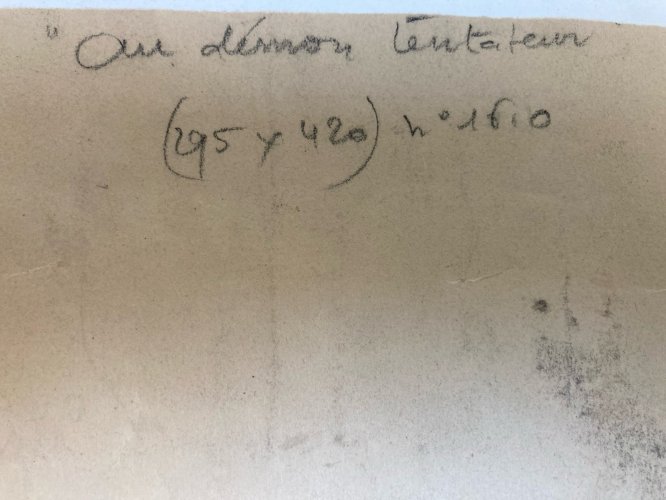 " Au démon tentateur
(295 x 420) n° 1610